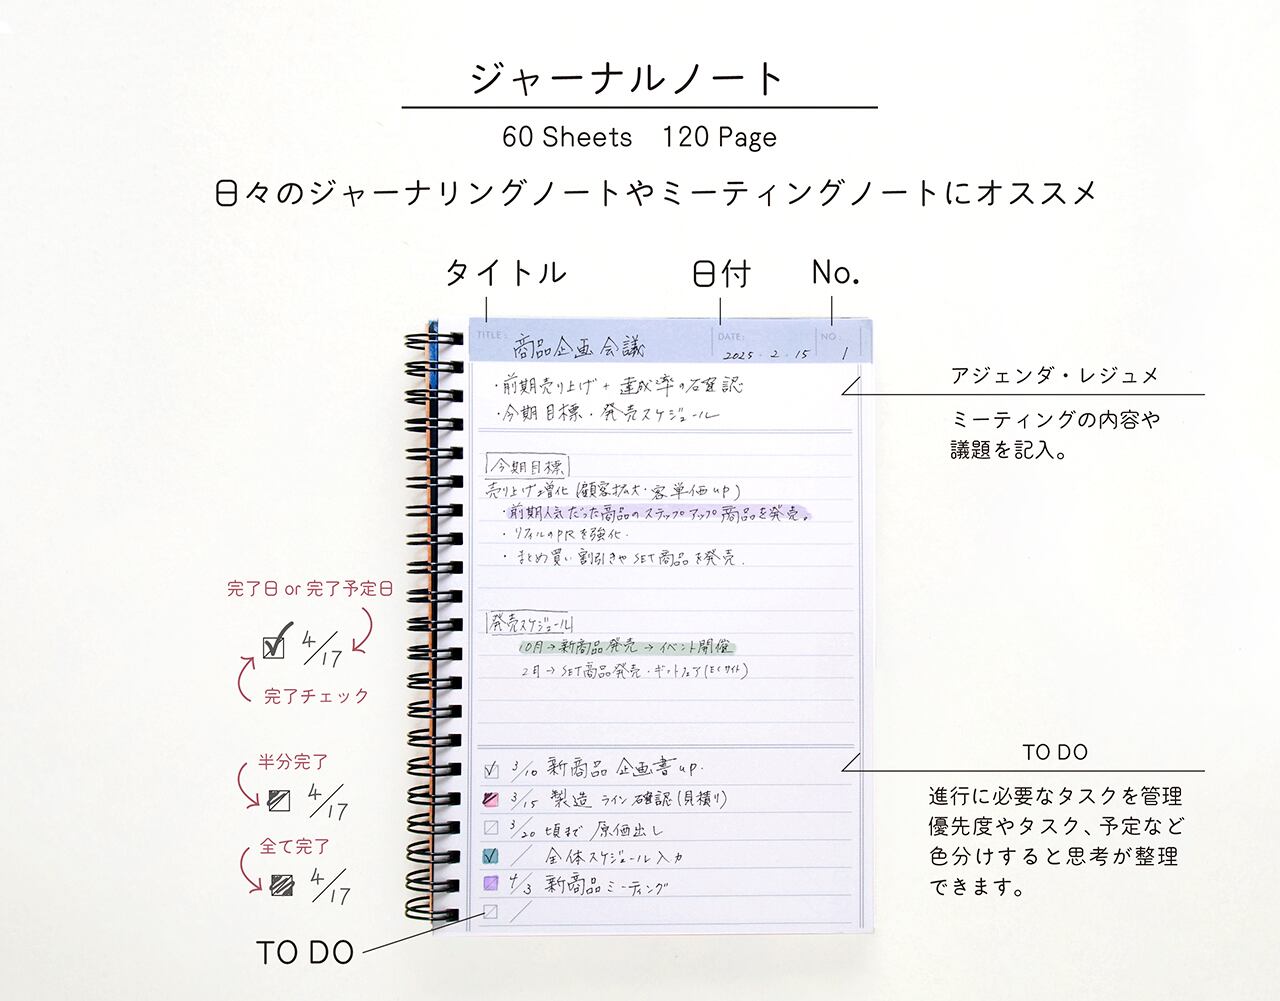 ジャーナルノート
60 Sheets 120 Page
日々のジャーナリングノートやミーティングノートにオススメ
タイトル 日付 No.
TITLE: 商品企画会議 DATE: 2025.2.15 NO. 1
・前期売り上げ+達成率の確認
・今期目標・発売スケジュール
アジェンダ・レジュメ
ミーティングの内容や
議題を記入。
今期目標
売り上げ増化(顧客拡大・客単価up)
・前期人気だった商品のステップアップ商品を発売。
・リフィルのPRを強化.
・まとめ買い割引きやSET商品を発売.
発売スケジュール
10月→新商品発売→イベント開催
2月→SET商品発売・ギフトフェア(ECサイト)
完了日 or 完了予定日
4/17
完了チェック
半分完了
4/17
全て完了
4/17
TO DO
3/10 新商品企画書up.
3/15 製造ライン確認(見積り)
3/20 頃まで原価出し
/ 全体スケジュール入力
4/3 新商品ミーティング
/
TO DO
進行に必要なタスクを管理
優先度やタスク、予定など
色分けすると思考が整理
できます。